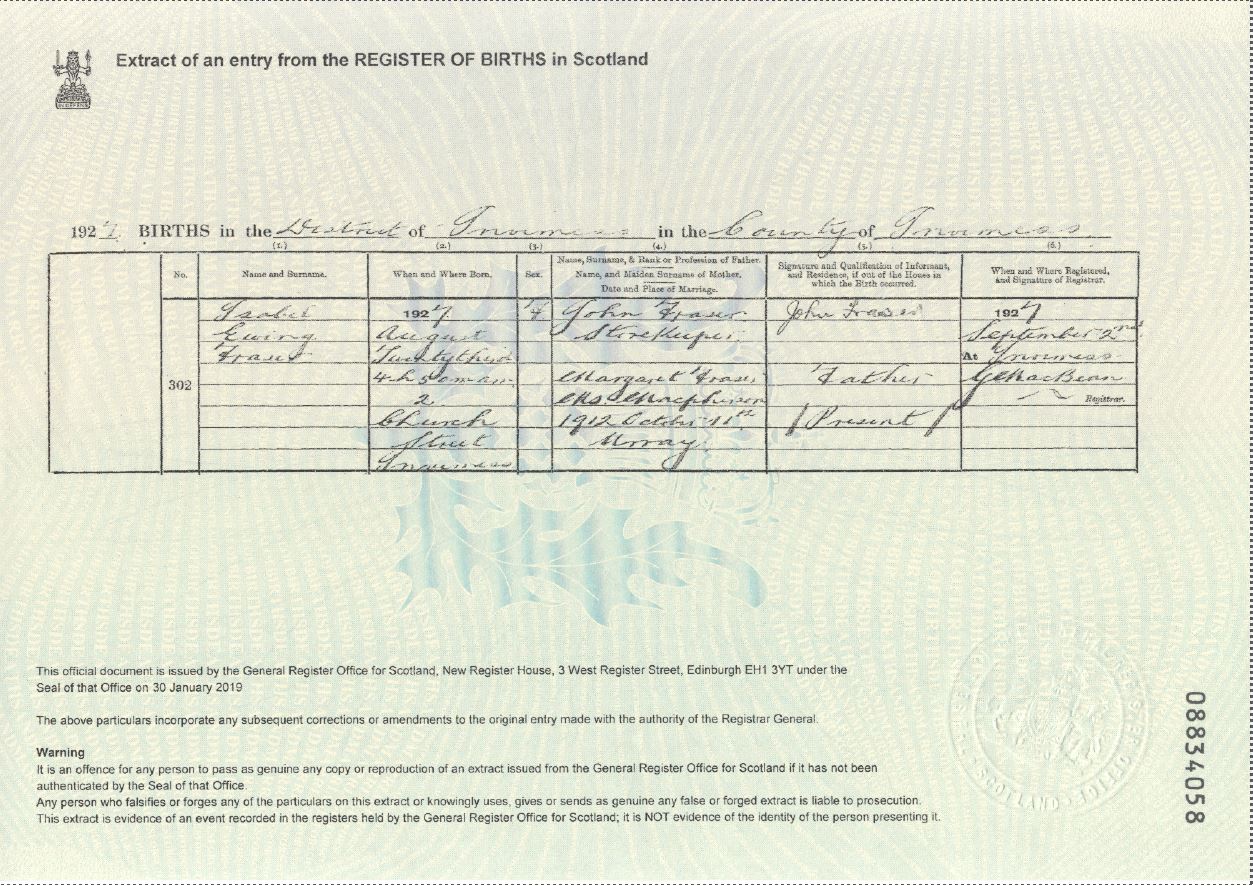 Extract of an entry from the REGISTER OF BIRTHS in Scotland
1927. BIRTHS in the District of Inverness in the County of Inverness
(1.) (2.) (3.) (4.) (5.) (6.)
No.
Name and Surname.
When and Where Born.
Sex.
Name, Surname, & Rank or Profession of Father.
Name, and Maiden Surname of Mother.
Date and Place of Marriage.
Signature and Qualification of Informant,
and Residence, if out of the House in
which the Birth occurred.
When and Where Registered,
and Signature of Registrar.
302
Isobel
Ewing
Fraser
1927
August
Twentythird
4h 50m am
2
Church
Street
Inverness
F
John Fraser
Storekeeper
Margaret Fraser
M.S. Macpherson
1912 October 11th
Murray
John Fraser
Father
(Present)
1927
September 2nd
At Inverness
MacBean
Registrar.
This official document is issued by the General Register Office for Scotland, New Register House, 3 West Register Street, Edinburgh EH1 3YT under the
Seal of that Office on 30 January 2019
The above particulars incorporate any subsequent corrections or amendments to the original entry made with the authority of the Registrar General.
Warning
It is an offence for any person to pass as genuine any copy or reproduction of an extract issued from the General Register Office for Scotland if it has not been
authenticated by the Seal of that Office.
Any person who falsifies or forges any of the particulars on this extract or knowingly uses, gives or sends as genuine any false or forged extract is liable to prosecution.
This extract is evidence of an event recorded in the registers held by the General Register Office for Scotland; it is NOT evidence of the identity of the person presenting it.
08834058
SCOTLAND